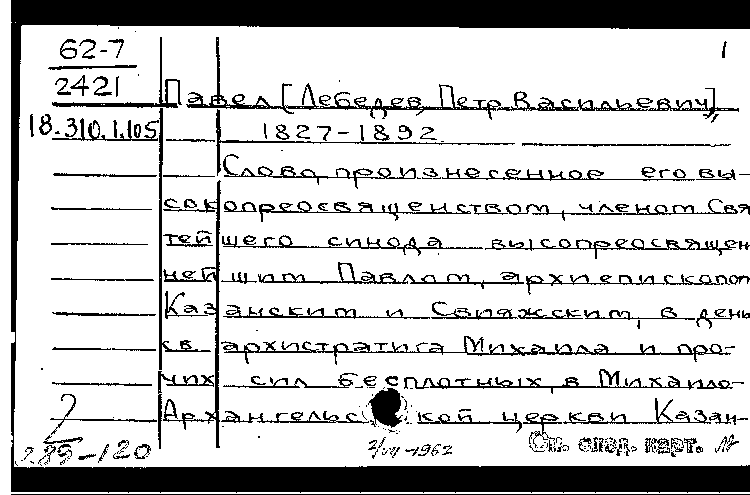 62-7
2421
1
Павел [Лебедев, Петр Васильевич],
18.310.1.105
1827-1892
Слово, произнесенное его вы-
сокопреосвященством, членом Свя
тейшего синода высопреосвящен
нейшим Павлом, архиепископом
Казанским и Свияжским, в день
св. архистратига Михаила и про-
чих сил бесплотных, в Михаило-
Архангельской церкви Казан-
2
289-120
2/VII-1962
См. след. карт. №